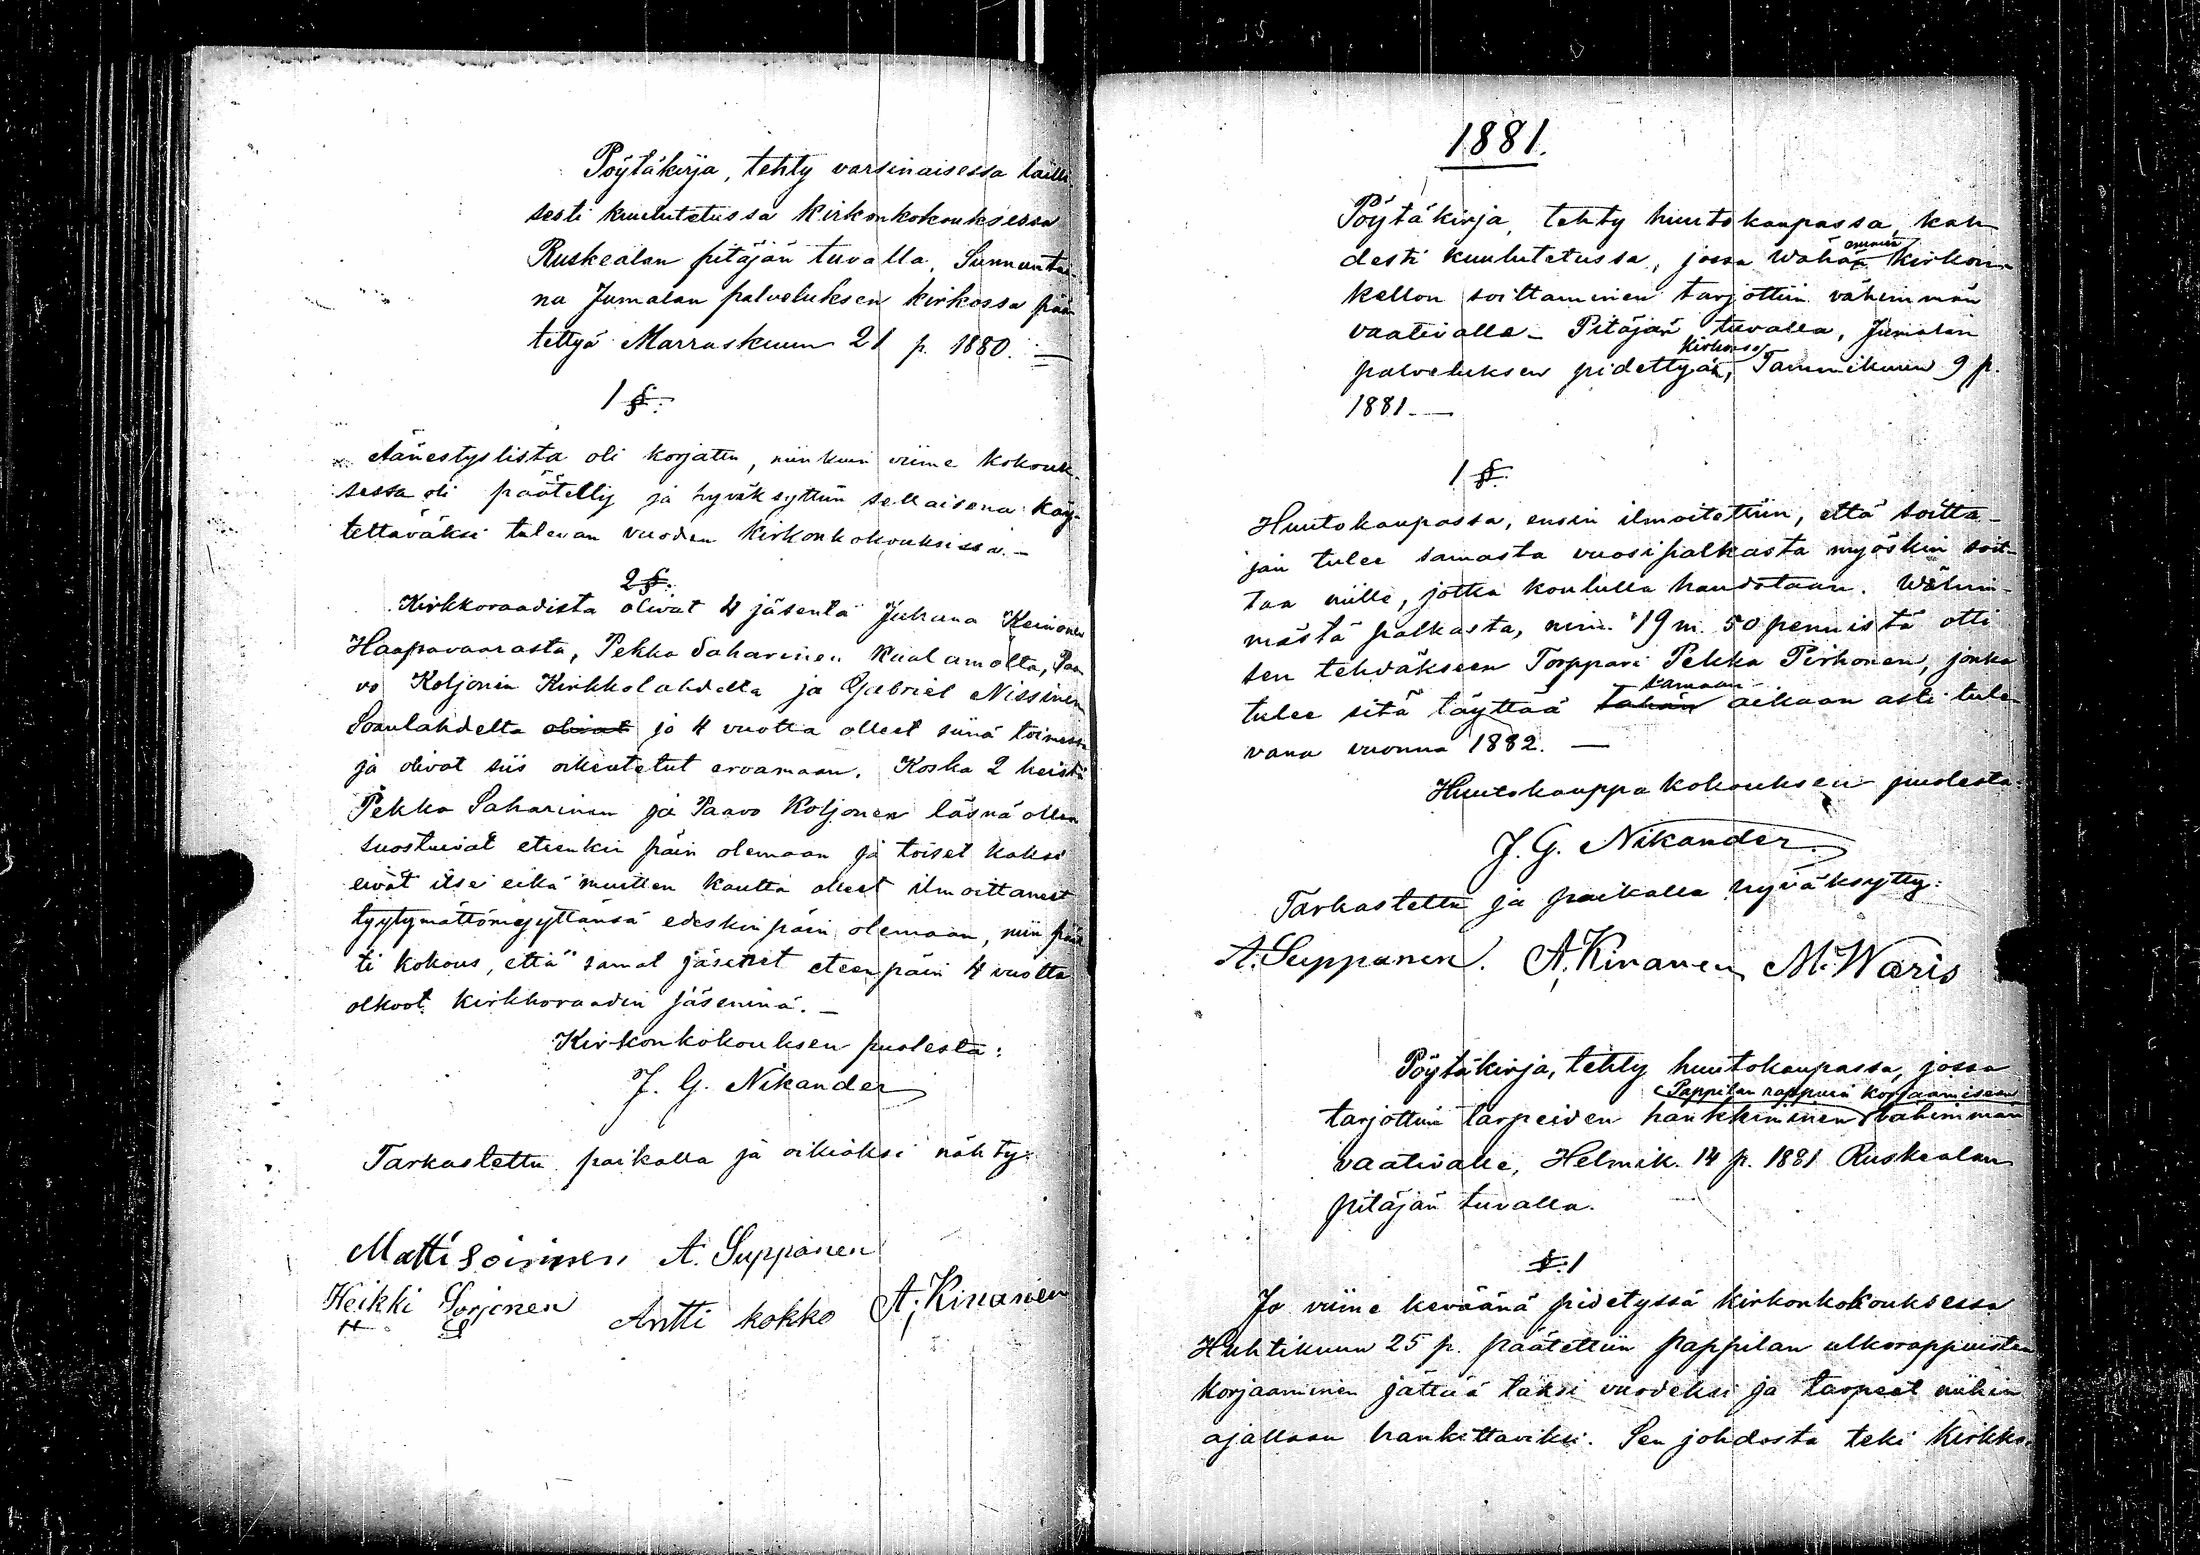 Pöytäkirja, tehty varsinaisessa lailli-
sesti kuulutetussa kirkonkokouksessa
Ruskealan pitäjän tuvalla, Sunnuntai-
na Jumalan palveluksen kirkossa pää-
tettyä Marraskuun 21 p. 1880. —
1 §.
Äänestyslista oli korjattu, niinkuin viime kokouk-
sessa oli päätetty ja hyväksyttiin sellaisena käy-
tettäväksi tulevan vuoden kirkonkokouksissa. —
2 §.
Kirkkoraadista olivat 4 jäsentä Juhana Keinonen
Haapavaarasta, Pekka Saharinen Kaalamolta, Paa-
vo Koljonen Kirkkolahdelta ja Gabriel Nissinen
Soanlahdelta olivat jo 4 vuotta olleet siinä toimessa
ja olivat siis oikeutetut eroamaan. Koska 2 heistä
Pekka Saharinen ja Paavo Koljonen läsnä ollen
suostuivat eteenkin päin olemaan ja toiset kaksi
eivät itse eikä muitten kautta olleet ilmoittaneet
tyytymättömyyttänsä edeskinpäin olemaan, niin päät-
ti kokous, että samat jäsenet eteenpäin 4 vuotta
olkoot kirkkoraadin jäseninä. —
Kirkonkokouksen puolesta:
J. G. Nikander
Tarkastettu paikalla ja oikiaksi nähty:
Matti Soininen A. Suppanen
Heikki Sorjonen Antti kokko A. Kinanen
1881.
Pöytäkirja, tehty huutokaupassa, kah-
desti kuulutetussa, jossa Wähän kirkon-
kellon soittaminen tarjottiin vähimmän
vaativalle — Pitäjän tuvalla, Jumalan
kirkossa
palveluksen pidettyä, Tammikuun 9 p.
1881. —
1 §.
Huutokaupassa, ensin ilmoitettiin, että soitta-
jan tulee samasta vuosipalkasta myöskin soit-
taa niille, jotka koululla haudataan. Wähim-
mästä palkasta, nim. 19 m. 50 pennistä otti
sen tehdäkseen Torppari Pekka Pirhonen, jonka
samaan
tulee sitä täyttää tähän aikaan asti tule-
vana vuonna 1882. —
Huutokauppa kokouksen puolesta:
J. G. Nikander.
Tarkastettu ja paikalla hyväksytty:
A. Suppanen. A. Kinanen M. Waris
Pöytäkirja, tehty huutokaupassa, jossa
Pappilan rappuin korjaamiseen
tarjottiin tarpeiden hankkiminen vähimmän
vaativalle, Helmik. 14 p. 1881 Ruskealan
pitäjän tuvalla.
§. 1
Jo viime keväänä pidetyssä kirkonkokouksessa
Huhtikuun 25 p. päätettiin pappilan ulkorappuisten
korjaaminen jättää täksi vuodeksi ja tarpeet niihin
ajallaan hankittaviksi. Sen johdosta teki kirkko-